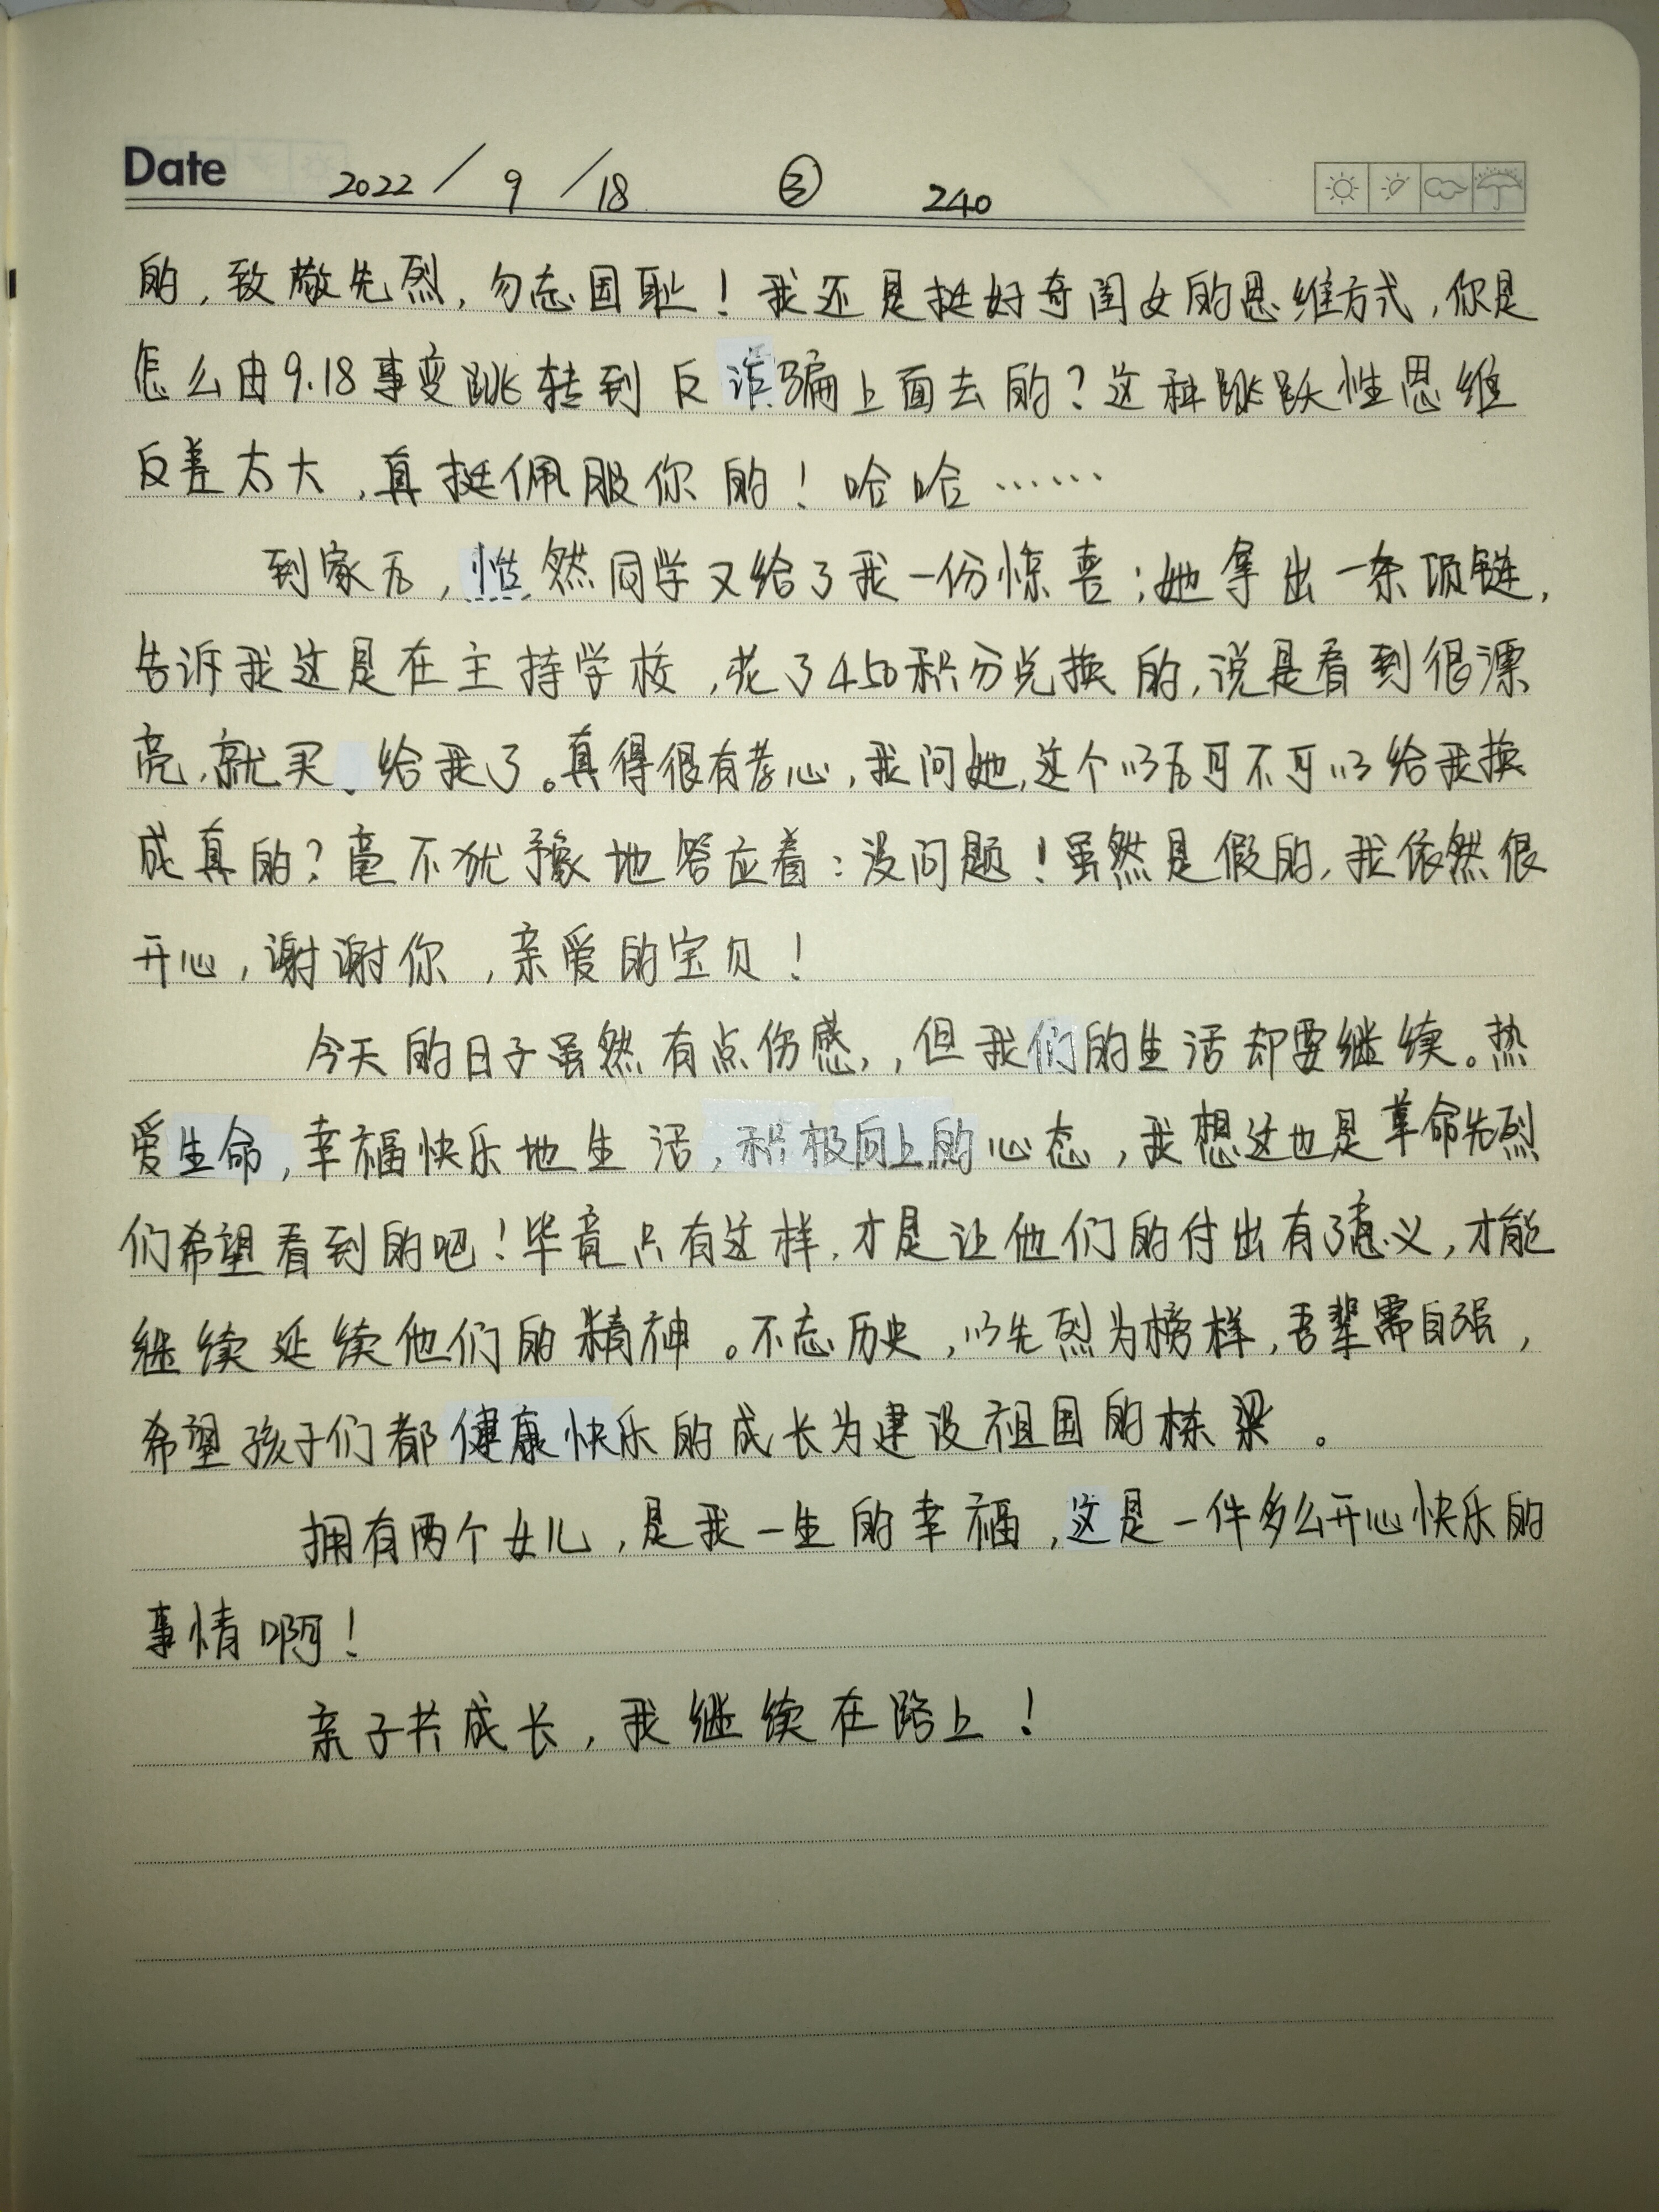 Date 2022 / 9 / 18 ③ 240
的,致敬先烈,勿忘国耻!我还是挺好奇闺女的思维方式,你是
怎么由9.18事变跳转到反诈骗上面去的?这种跳跃性思维
反差太大,真挺佩服你的!哈哈……
到家后,然同学又给了我一份惊喜:她拿出一条项链,
告诉我这是在主持学校,花了450积分兑换的,说是看到很漂
亮,就买、给我了。真得很有孝心,我问她,这个以后可不可以给我换
成真的?毫不犹豫地答应着:没问题!虽然是假的,我依然很
开心,谢谢你,亲爱的宝贝!
今天的日子虽然有点伤感,,但我们的生活却要继续。热
爱生命,幸福快乐地生活,积极向上的心态,我想这也是革命先烈
们希望看到的吧!毕竟只有这样,才是让他们的付出有了意义,才能
继续延续他们的精神。不忘历史,以先烈为榜样,吾辈需自强,
希望孩子们都健康快乐的成长为建设祖国的栋梁。
拥有两个女儿,是我一生的幸福,这是一件多么开心快乐的
事情啊!
亲子共成长,我继续在路上!